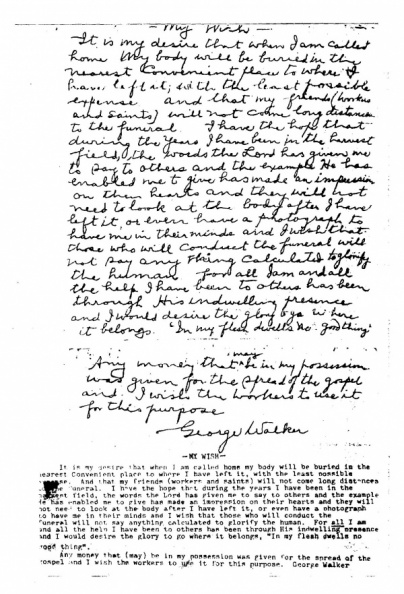 - My Wish -
It is my desire that when I am called
home My body will be buried in the
nearest Convenient place to where I
have left it; with the least possible
expense and that my friends (workers
and saints) will not come long distances
to the funeral I have the hope that
during the years I have been in the harvest
field, the words the Lord has given me
to say to others and the example He has
enabled me to give has made an impression
on their hearts and they will not
need to look at the body after I have
left it, or even have a photograph to
have me in their minds and I wish that
those who will conduct the funeral will
not say any thing calculated to glorify
the human for all I am and all
the help I have been to others has been
through His indwelling presence
and I would desire the glory to go where
it belongs. "In my flesh dwells no good thing"
Any money that may be in my possession
was given for the spread of the gospel
and I wish the workers to use it
for this purpose
George Walker
-MY WISH-
It is my desire that when I am called home my body will be buried in the
nearest Convenient place to where I have left it, with the least possible
And that my friends (workers and saints) will not come long distances
funeral. I have the hope that during the years I have been in the
field, the words the Lord has given me to say to others and the example
He has enabled me to give has made an impression on their hearts and they will
not need to look at the body after I have left it, or even have a photograph
to have me in their minds and I wish that those who will conduct the
funeral will not say anything calculated to glorify the human. For all I am
and all the help I have been to others has been through His indwelling presence
and I would desire the glory to go where it belongs, "In my flesh dwells no
good thing".
Any money that (may) be in my possession was given for the spread of the
gospel and I wish the workers to use it for this purpose. George Walker